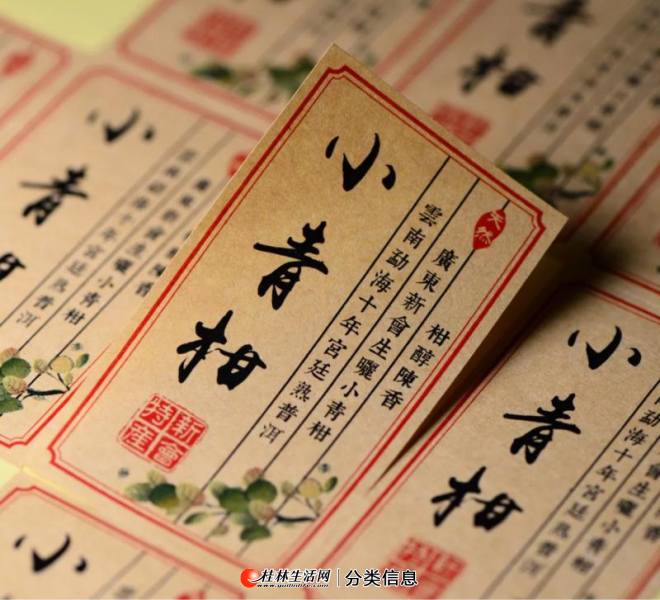 天然
柑醇陳香
廣東新會生曬小青柑
雲南勐海十年宮廷熟普洱
小青柑
新會
特產
小青柑
小青柑
小
桂林生活网 | 分类信息
www.guilinlife.com